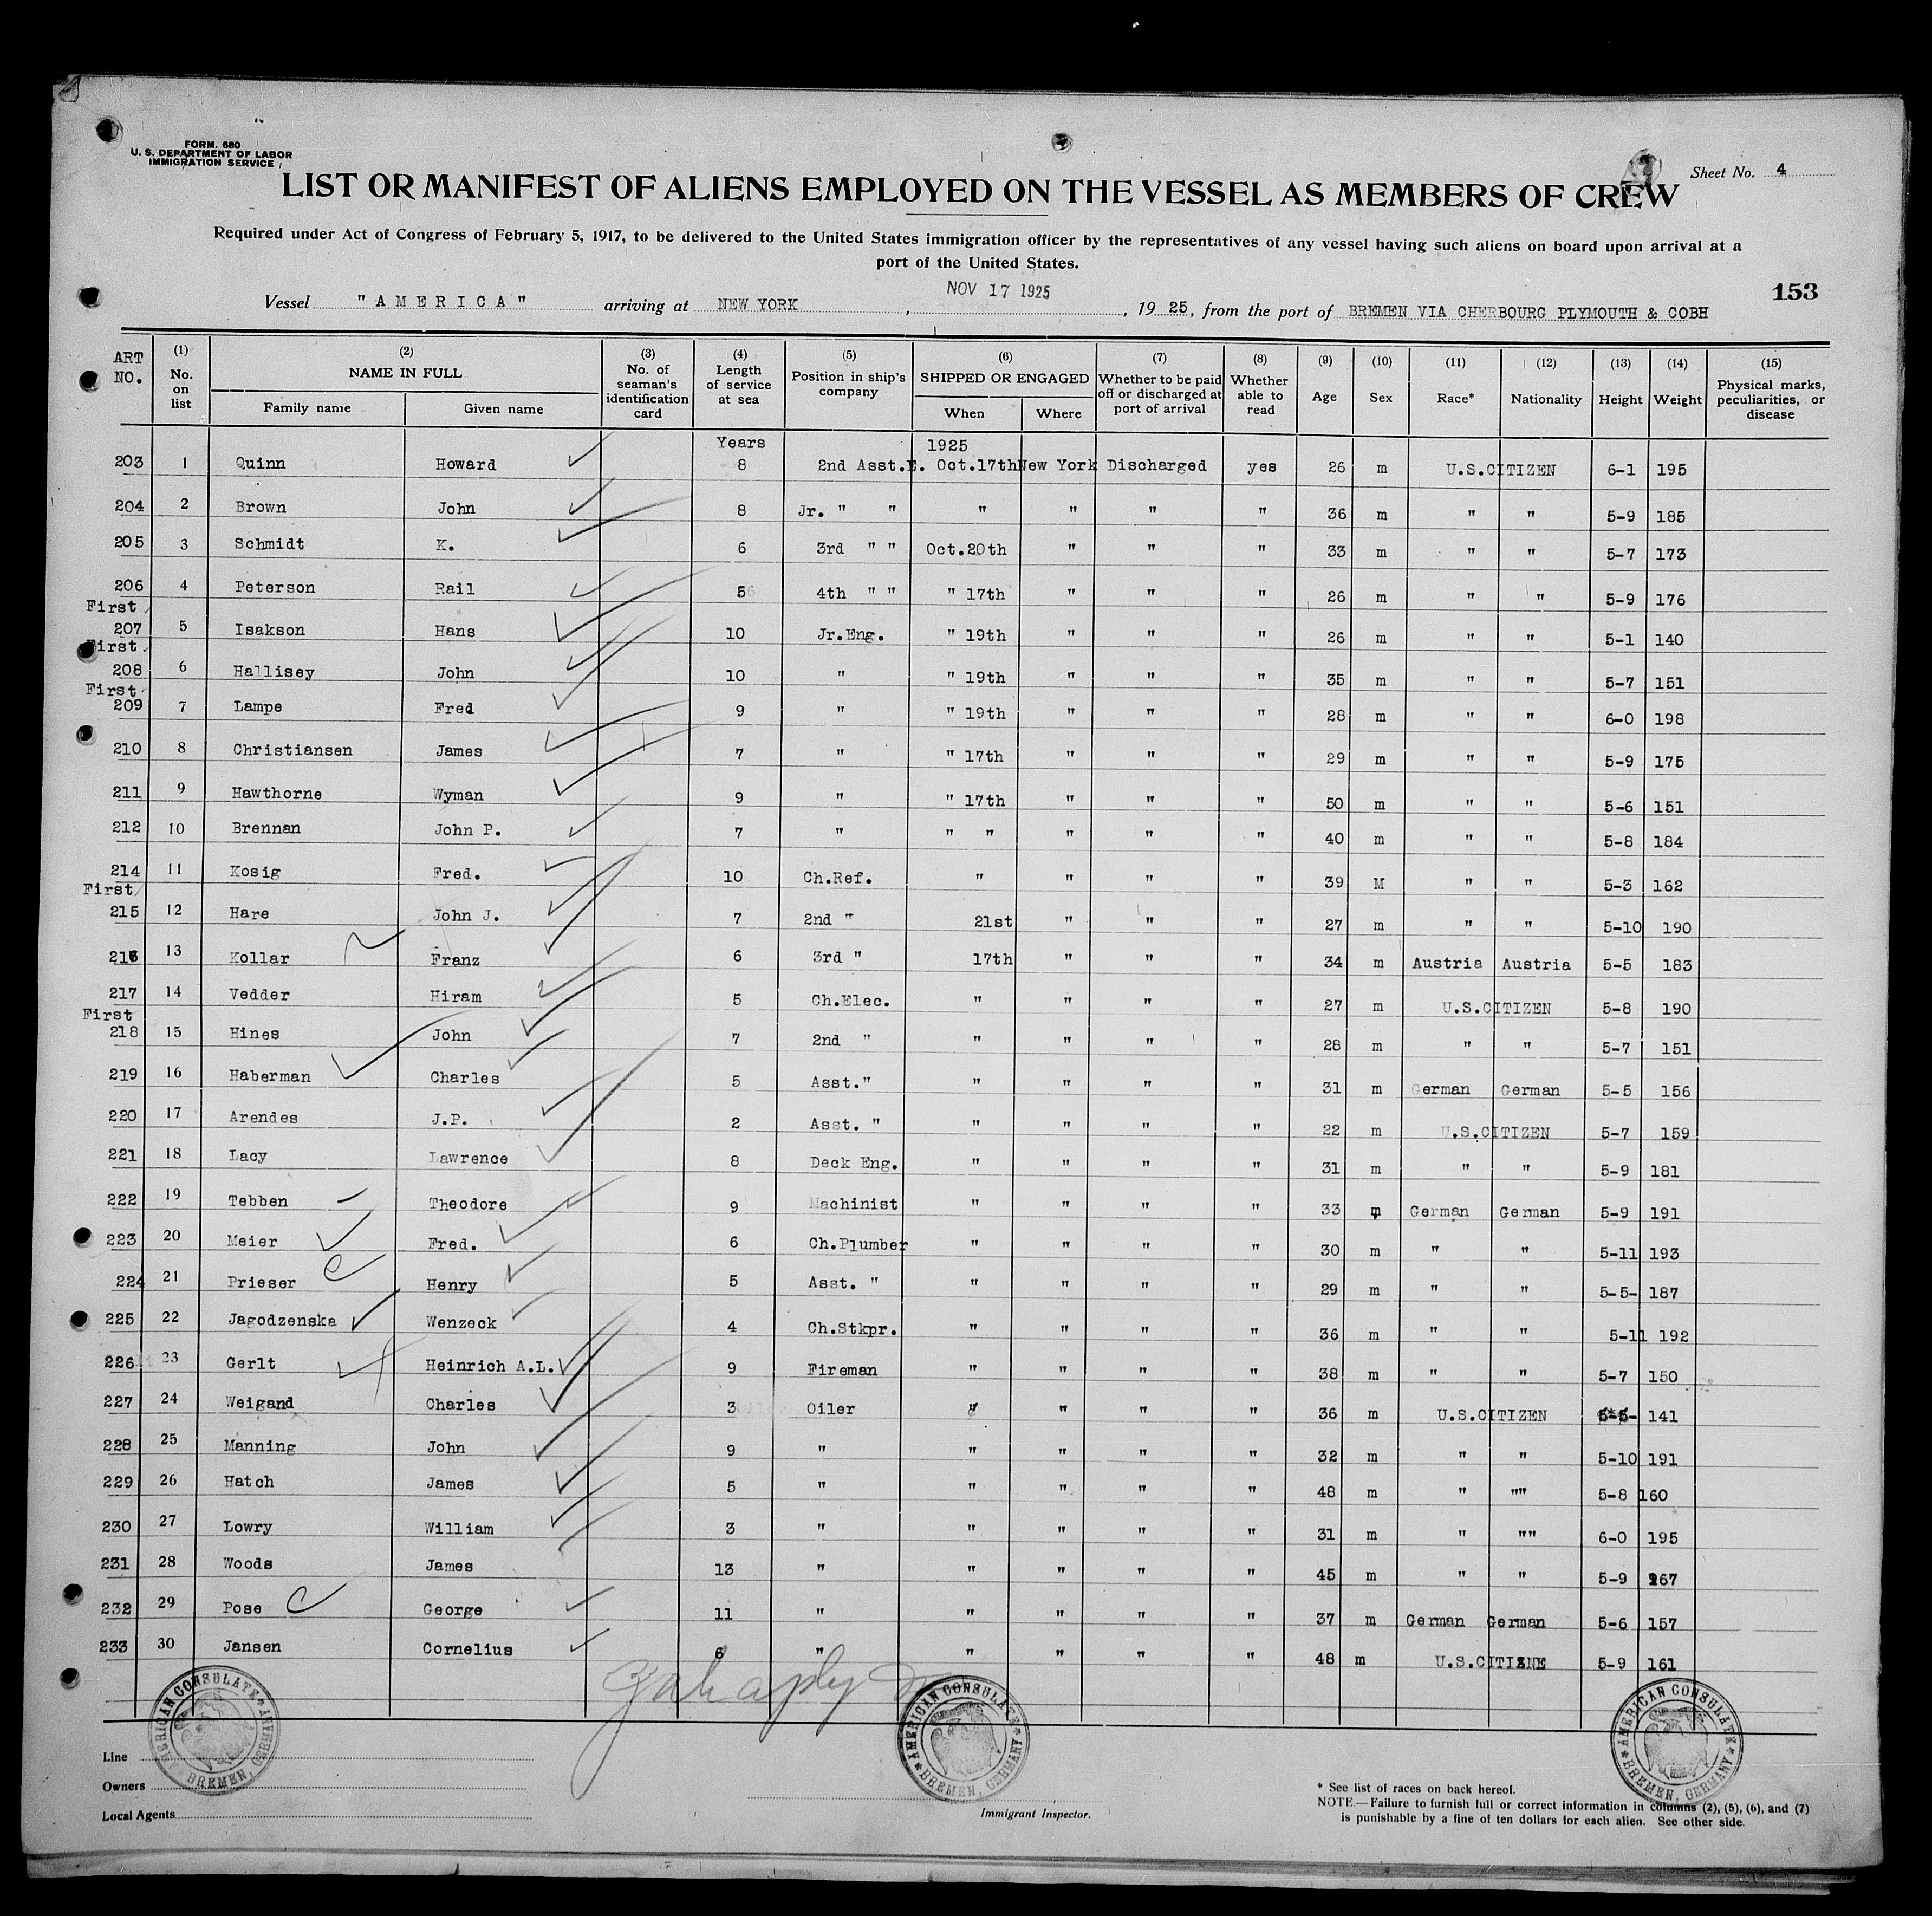 FORM. 680
U. S. DEPARTMENT OF LABOR
IMMIGRATION SERVICE
Sheet No. 4
LIST OR MANIFEST OF ALIENS EMPLOYED ON THE VESSEL AS MEMBERS OF CREW
Required under Act of Congress of February 5, 1917, to be delivered to the United States immigration officer by the representatives of any vessel having such aliens on board upon arrival at a
port of the United States.
NOV 17 1925
153
Vessel "AMERICA" arriving at NEW YORK, , 19 25, from the port of BREMEN VIA CHERBOURG PLYMOUTH & COBH
ART NO. (1) No. on list (2) NAME IN FULL Family name Given name (3) No. of seaman's identification card (4) Length of service at sea (5) Position in ship's company (6) SHIPPED OR ENGAGED When Where (7) Whether to be paid off or discharged at port of arrival (8) Whether able to read (9) Age (10) Sex (11) Race* (12) Nationality (13) Height (14) Weight (15) Physical marks, peculiarities, or disease
Years 1925
203 1 Quinn Howard 8 2nd Asst.E. Oct.17th New York Discharged yes 26 m U.S.CITIZEN 6-1 195
204 2 Brown John 8 Jr. " " " " " " 36 m " " 5-9 185
205 3 Schmidt K. 6 3rd " " Oct.20th " " " 33 m " " 5-7 173
206 4 Peterson Rail 5 4th " " " 17th " " " 26 m " " 5-9 176
First
207 5 Isakson Hans 10 Jr.Eng. " 19th " " " 26 m " " 5-1 140
First
208 6 Hallisey John 10 " " 19th " " " 35 m " " 5-7 151
First
209 7 Lampe Fred 9 " " 19th " " " 28 m " " 6-0 198
210 8 Christiansen James 7 " " 17th " " " 29 m " " 5-9 175
211 9 Hawthorne Wyman 9 " " 17th " " " 50 m " " 5-6 151
212 10 Brennan John P. 7 " " " " " " 40 m " " 5-8 184
214 11 Kosig Fred. 10 Ch.Ref. " " " " 39 M " " 5-3 162
First
215 12 Hare John J. 7 2nd " 21st " " " 27 m " " 5-10 190
216 13 Kollar Franz 6 3rd " 17th " " " 34 m Austria Austria 5-5 183
217 14 Vedder Hiram 5 Ch.Elec. " " " " 27 m U.S.CITIZEN 5-8 190
First
218 15 Hines John 7 2nd " " " " " 28 m " " 5-7 151
219 16 Haberman Charles 5 Asst." " " " " 31 m German German 5-5 156
220 17 Arendes J.P. 2 Asst. " " " " " 22 m U.S.CITIZEN 5-7 159
221 18 Lacy Lawrence 8 Deck Eng. " " " " 31 m " " 5-9 181
222 19 Tebben Theodore 9 Machinist " " " " 33 m German German 5-9 191
223 20 Meier Fred. 6 Ch.Plumber " " " " 30 m " " 5-11 193
224 21 Prieser Henry 5 Asst. " " " " " 29 m " " 5-5- 187
225 22 Jagodzenska Wenzeck 4 Ch.Stkpr. " " " " 36 m " " 5-11 192
226 23 Gerlt Heinrich A.L. 9 Fireman " " " " 38 m " " 5-7 150
227 24 Weigand Charles 3 Oiler " " " " 36 m U.S.CITIZEN 5-5- 141
228 25 Manning John 9 " " " " " 32 m " " 5-10 191
229 26 Hatch James 5 " " " " " 48 m " "" 5-8 160
230 27 Lowry William 3 " " " " " 31 m " "" 6-0 195
231 28 Woods James 13 " " " " " 45 m " " 5-9 267
232 29 Pose George 11 " " " " " 37 m German German 5-6 157
233 30 Jansen Cornelius 6 " " " " " 48 m U.S.CITIZNE 5-9 161
AMERICAN CONSULATE BREMEN, GERMANY
AMERICAN CONSULATE BREMEN, GERMANY
AMERICAN CONSULATE BREMEN, GERMANY
Line
Owners
Local Agents
Immigrant Inspector.
* See list of races on back hereof.
NOTE.—Failure to furnish full or correct information in columns (2), (5), (6), and (7)
is punishable by a fine of ten dollars for each alien. See other side.